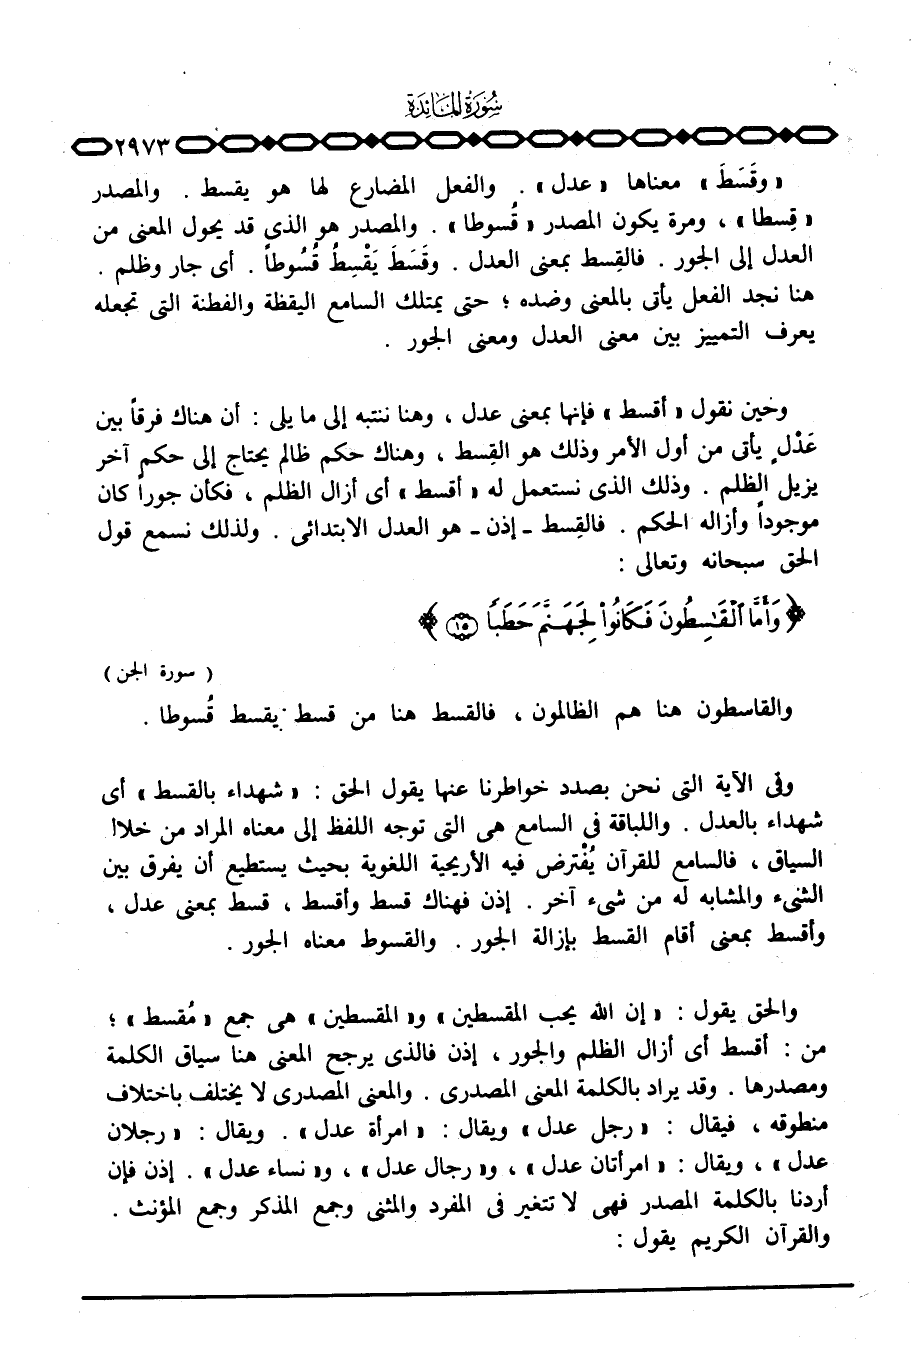 سُورَةُ المَائِدَة
٢٩٧٣
« وقَسَطَ » معناها « عدل » . والفعل المضارع لها هو يقسط . والمصدر
« قِسطا » ، ومرة يكون المصدر « قُسوطا » . والمصدر هو الذى قد يحول المعنى من
العدل إلى الجور . فالقِسط بمعنى العدل . وقَسَطَ يَقْسِطُ قُسُوطاً . أى جار وظلم .
هنا نجد الفعل يأتى بالمعنى وضده ؛ حتى يمتلك السامع اليقظة والفطنة التى تجعله
يعرف التمييز بين معنى العدل ومعنى الجور .
وحين نقول « أقسط » فإنها بمعنى عدل ، وهنا ننتبه إلى ما يلى : أن هناك فرقاً بين
عَدْلٍ يأتى من أول الأمر وذلك هو القِسط ، وهناك حكم ظالم يحتاج إلى حكم آخر
يزيل الظلم . وذلك الذى نستعمل له « أقسط » أى أزال الظلم ، فكأن جوراً كان
موجوداً وأزاله الحكم . فالقِسط ـ إذن ـ هو العدل الابتدائى . ولذلك نسمع قول
الحق سبحانه وتعالى :
﴿ وَأَمَّا ٱلْقَـٰسِطُونَ فَكَانُوا۟ لِجَهَنَّمَ حَطَبًا ١٥ ﴾
( سورة الجن )
والقاسطون هنا هم الظالمون ، فالقسط هنا من قسط يقسط قُسوطا .
وفى الآية التى نحن بصدد خواطرنا عنها يقول الحق : « شهداء بالقسط » أى
شهداء بالعدل . واللباقة فى السامع هى التى توجه اللفظ إلى معناه المراد من خلال
السياق ، فالسامع للقرآن يُفْترض فيه الأريحية اللغوية بحيث يستطيع أن يفرق بين
الشىء والمشابه له من شىء آخر . إذن فهناك قسط وأقسط ، قسط بمعنى عدل ،
وأقسط بمعنى أقام القسط بإزالة الجور . والقسوط معناه الجور .
والحق يقول : « إن الله يحب المقسطين » و« المقسطين » هى جمع « مُقسط » ؛
من : أقسط أى أزال الظلم والجور ، إذن فالذى يرجح المعنى هنا سياق الكلمة
ومصدرها . وقد يراد بالكلمة المعنى المصدرى . والمعنى المصدرى لا يختلف باختلاف
منطوقه ، فيقال : « رجل عدل » ويقال : « امرأة عدل » . ويقال : « رجلان
عدل » ، ويقال : « امرأتان عدل » ، و« رجال عدل » ، و« نساء عدل » . إذن فإن
أردنا بالكلمة المصدر فهى لا تتغير فى المفرد والمثنى وجمع المذكر وجمع المؤنث .
والقرآن الكريم يقول :